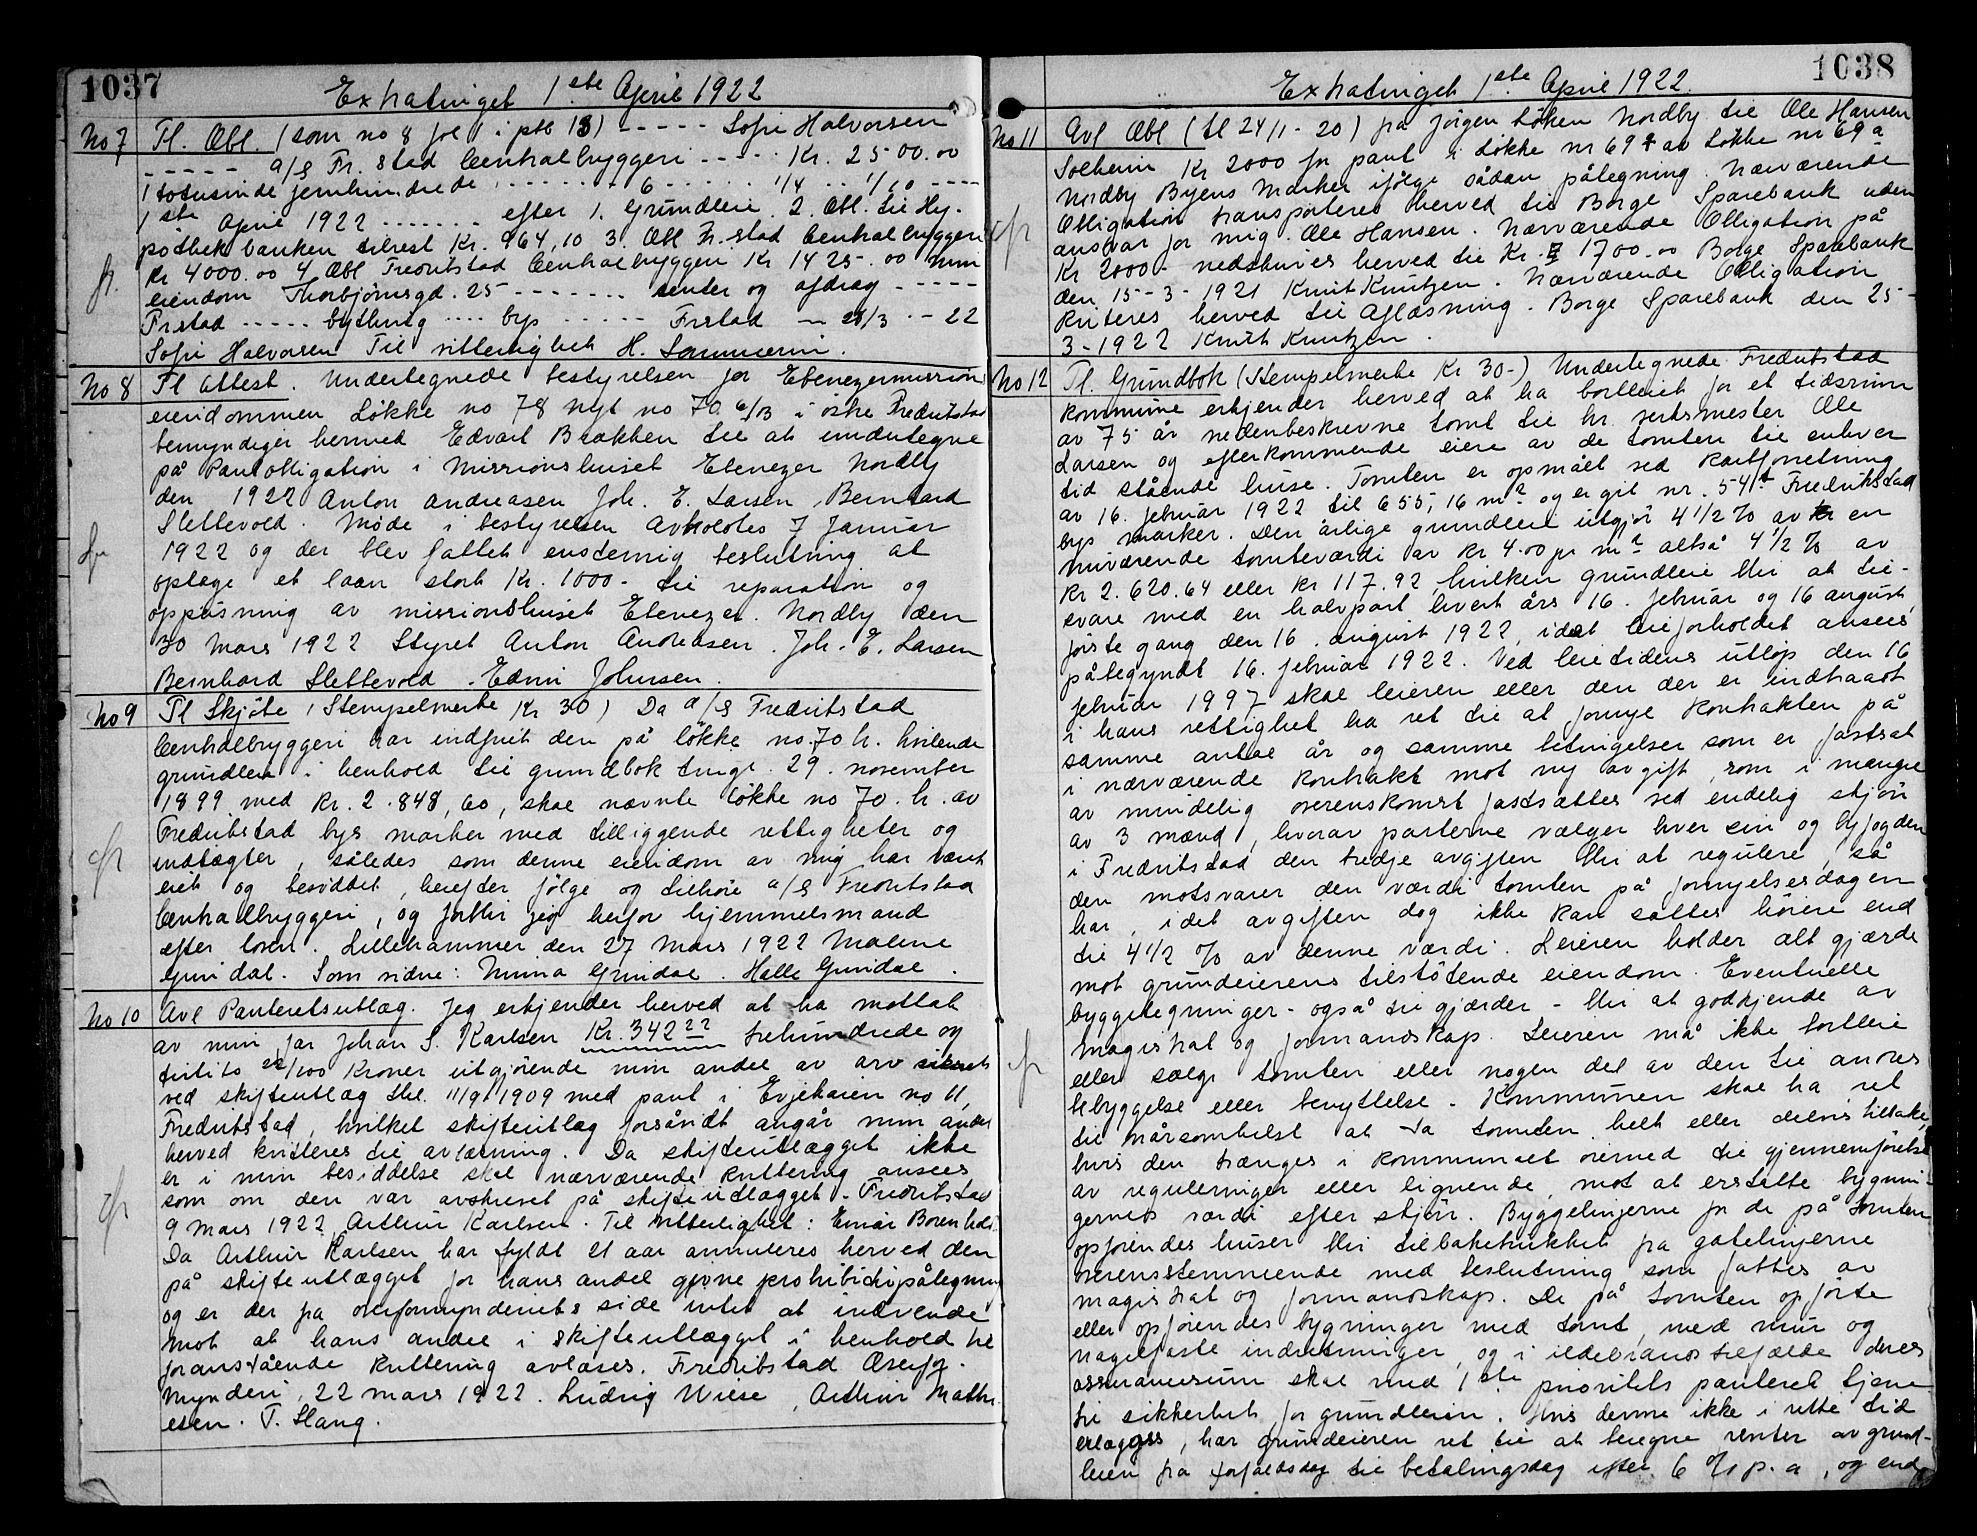 1037
Extratinget 1ste April 1922
No 7 Tl. Obl. (som no 8 fol 1 i ptb 13) ----- Sofie Halvorsen
----- a/s Fr.stad Centralbryggeri ---- Kr. 2500.00
1 totusinde femhundrede ------ 6 ------ 1/4 --- 1/10 ----
1ste April 1922 ------ efter 1. Grundleie. 2. Obl. til Hy-
potbekbanken tilrest Kr. 964,10 3. Obl Fr.stad Centralbryggeri
Kr 4000.00 4 Obl Fredrikstad Centralbryggeri Kr 1425.00 min
fr.
eiendom Thorbjörnsgd. 25 ------- renter og afdrag -----
Frstad ----- bything ---- bys ------ Frstad -- 28/3 -- 22
Sofie Halvorsen Til vitterlighet H. Sommerin.
No 8 Tl attest. Undertegnede bestyrelsen for Ebenezermission
eiendommen Løkke no 78 nyt no 70 c/13 i östre Fredrikstad
bemyndiger hermed Edvart Brækken til at undertegne
på Pantobligation i Missionshuset Ebenezer Nordby
den 1922 Anton Andreasen Joh. E. Larsen, Bernhard
Slettevold. Møde i bestyrelsen avholdtes 7 Januar
fr
1922 og der blev fattet enstemig beslutning at
optage et laan stort Kr. 1000- til reparation og
oppusning av missionshuset Ebenezer. Nordby den
30 Mars 1922 Styret Anton Andreasen. Joh. E. Larsen
Bernhard Slettevold. Edvin Johnsen.
No 9 Tl Skjöte (Stempelmerke Kr 30) Da a/s Fredrikstad
Centralbryggeri har indfriet den på løkke no. 70 h. hvilende
grundleie i henhold til grundbok tingl. 29. november
1899 med Kr. 2.848,60, skal nævnte løkke no 70. h. av
Fredrikstad bys marker med tilliggende rettigheter og
fr
indtægter, således som denne eiendom av mig har været
eiet og besiddet, herefter følge og tilhöre a/s Fredrikstad
Centralbryggeri, og forblir jeg herfor hjemmelsmand
efter loven. Lillehammer den 27 Mars 1922 Malene
Grindal. Som vidne: Minna Grindal. Halle Grindal.
No 10 Avl Panteretsutlæg. Jeg erkjender herved at ha mottat
av min far Johan S. Karlsen Kr. 342 22 trehundrede og
firtito 22/100 Kroner utgjörende min andel av arv sikret
ved skifteutlæg tbl. 11/9 1909 med pant i Evjekaien no 11,
Fredrikstad, hvilket skifteutlæg forsåvidt angår min andel
herved kvitteres til avlæsning. Da skifteutlægget ikke
er i min besiddelse skal nærværende kvittering ansees
fr
som om den var avskrevet på skifteutlægget. Fredrikstad
9 Mars 1922 Arthur Karlsen. Til vitterlighet: Einar Borenholdt.
Da Arthur Karlsen har fyldt 21 aar annuleres herved den
på skifteutlægget for hans andel gjorte prohibitivpålegning
og er der fra overformynderiets side intet at indvende
mot at hans andel i skifteutlægget i henhold til
foranstående kvittering avlæses. Fredrikstad Overfor-
mynderi, 22 mars 1922. Ludvig Wiese, Arthur Mathi-
esen. T. Stang.
1038
Extratinget 1ste April 1922.
No 11 Avl Obl (tl 24/1-20) fra Jörgen Løken Nordby til Ole Hansen
Solheim Kr 2000 for pant i Løkke nr 69 f av Løkke nr 69 a
Nordby Byens Marker ifölge sådan pålegning. Nærværende
Obligation transporteres herved til Borge Sparebank uden
fr
ansvar for mig. Ole Hansen. Nærværende Obligation på
Kr 2000- nedskrives herved til Kr. 1700.00 Borge Sparebank
den 15-3-1921 Knut Knutzen. Nærværende Obligation
kviteres herved til Aflæsning. Borge Sparebank den 25-
3-1922 Knut Knutzen.
No 12 Tl. Grundbok (Stempelmerke Kr 30-) Undertegnede Fredrikstad
kommune erkjender herved at ha bortleiet for et tidsrum
av 75 år nedenbeskrevne tomt til hr. verksmester Ole
Larsen og efterkommende eiere av de tomten til enhver
tid stående huse. Tomten er opmålt ved kartforretning
av 16. februar 1922 til 655,16 m² og er git nr. 541 Fredrikstad
bys marker. Den årlige grundleie utgjör 4 1/2 % av en
nuværende tomteværdi av Kr 4.00 pr m² altså 4 1/2 % av
Kr 2.620.64 eller Kr 117.92, hvilken grundleie blir at til-
svare med en halvpart hvert års 16. februar og 16 august,
förste gang den 16. august 1922, idet leieforholdet ansees
påbegyndt 16. februar 1922. Ved leietidens utløp den 16
februar 1997 skal leieren eller den der er indtraadt
i hans rettighet ha ret til at fornye Kontrakten på
samme antal år og samme betingelser som er fastsat
i nærværende Kontrakt mot ny avgift, som i mangel
av mindelig overenskomst fastsættes ved endelig skjön
av 3 mænd, hvorav parterne vælger hver sin og byfogden
i Fredrikstad den tredje avgiften blir at regulere, så
den motsvarer den værdi tomten på fornyelsesdagen
har, idet avgiften dog ikke kan sættes höiere end
til 4 1/2 % av denne værdi. Leieren holder alt gjærde
mot grundeierens tilstötende eiendom. Eventuelle
byggetegninger - også til gjærder - blir at godkjende av
magistrat og formandskap. Leieren må ikke bortleie
fr
eller sælge tomten eller nogen del av den til andres
bebyggelse eller benyttelse. Kommunen skal ha ret
til nårsomhelst at ta tomten helt eller delvis tilbake,
hvis den trænges i kommunalt öiemed til gjennemförelse
av reguleringer eller lignende, mot at erstatte bygnin-
gernes værdi efter skjön. Byggelinjerne for de på tomten
opföiendes huser blir tilbaketrukket fra gatelinjerne
overensstemmende med beslutning som fattes av
magistrat og formandskap. De på tomten opförte
eller opföiendes bygninger med tomt, med mur og
nagelfaste indretninger, og i ildebrandstilfælde deres
assurancesum skal med 1ste prioritets panteret tjene
til sikkerhet for grundleien. Hvis denne ikke i rette tid
erlægges, har grundeieren ret til at beregne renter av grund-
leien fra forfaldsdag til betalingsdag efter 6 % p. a, og ende